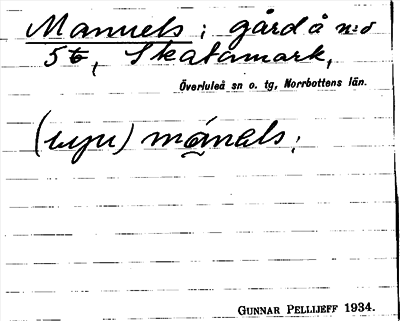 Manuels; gård å n:o
5 b, Skatamark,
Överluleå sn o. tg, Norrbottens län.
(uyu) mánels;
GUNNAR PELLIJEFF 1934.